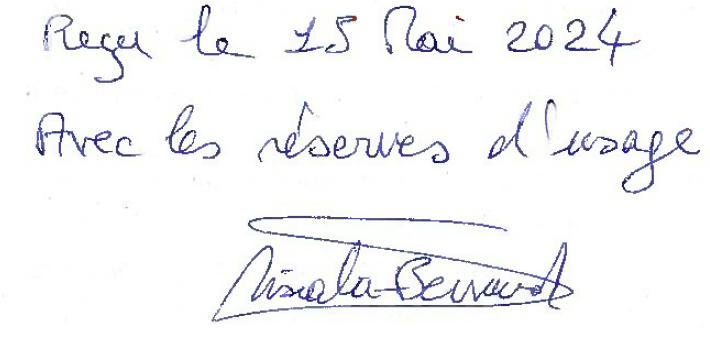 Reçu le 15 Mai 2024
Avec les réserves d'usage